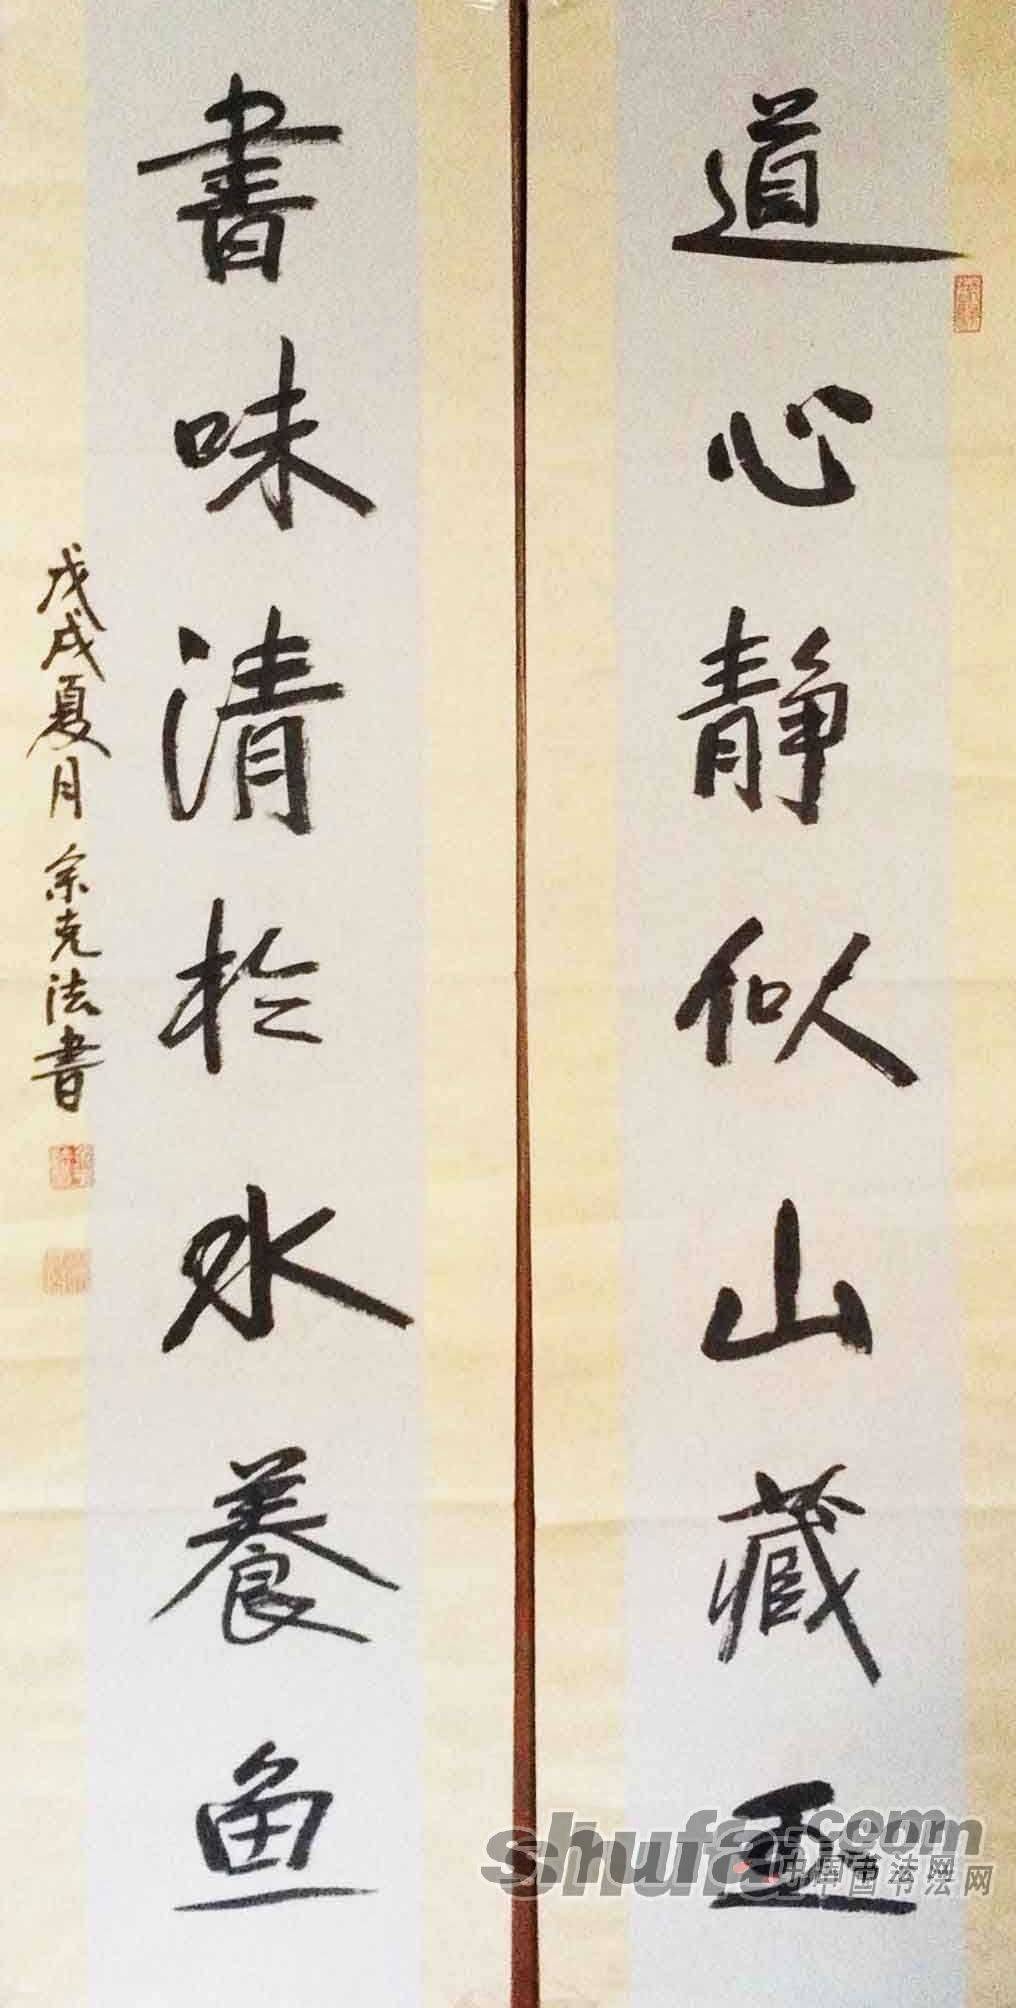 道心静似山藏玉
書味清於水養魚
戊戌夏月 克法書
shufa.com
中国书法网